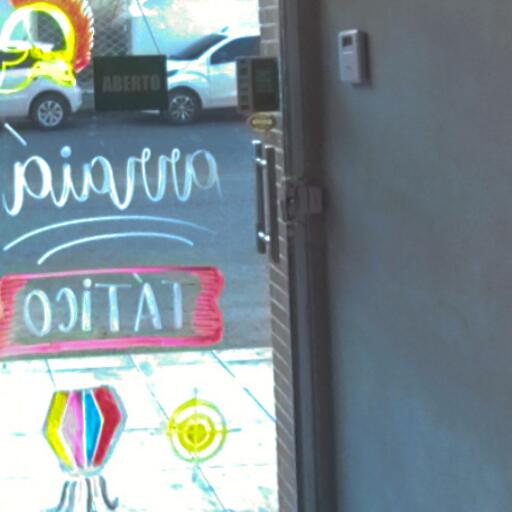 ABERTO
arraià
TÀTiCO